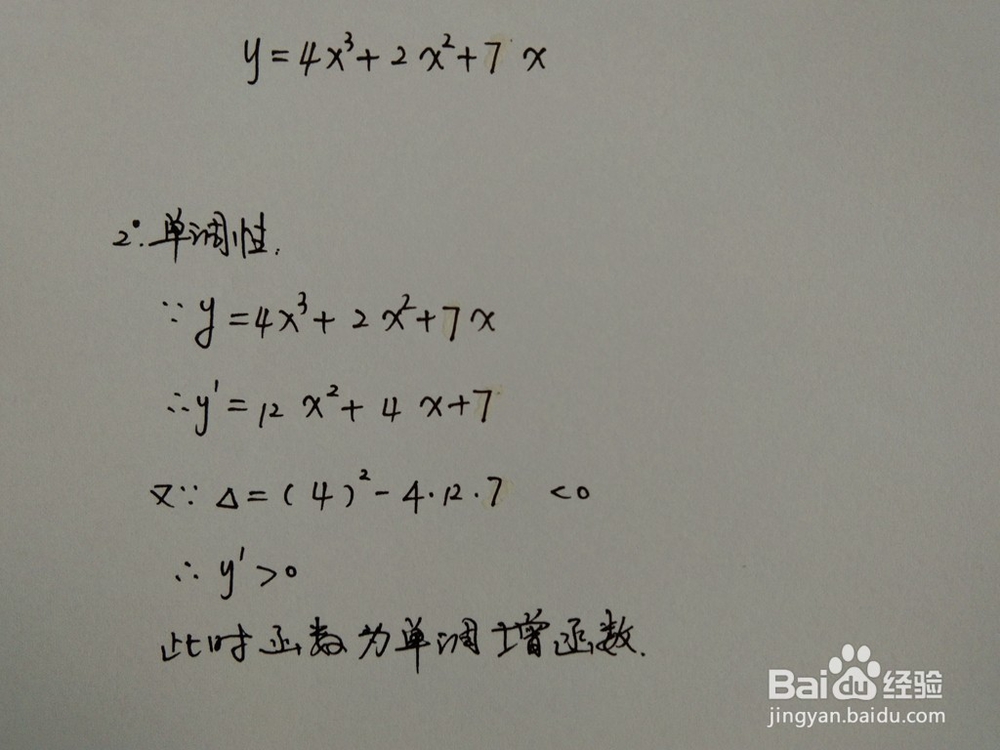 y=4x³+2x²+7x
2°.单调性.
∵y=4x³+2x²+7x
∴y'=12x²+4x+7
又∵Δ=(4)²-4·12·7 <0
∴y'>0
此时函数为单调增函数.
Baidu经验
jingyan.baidu.com